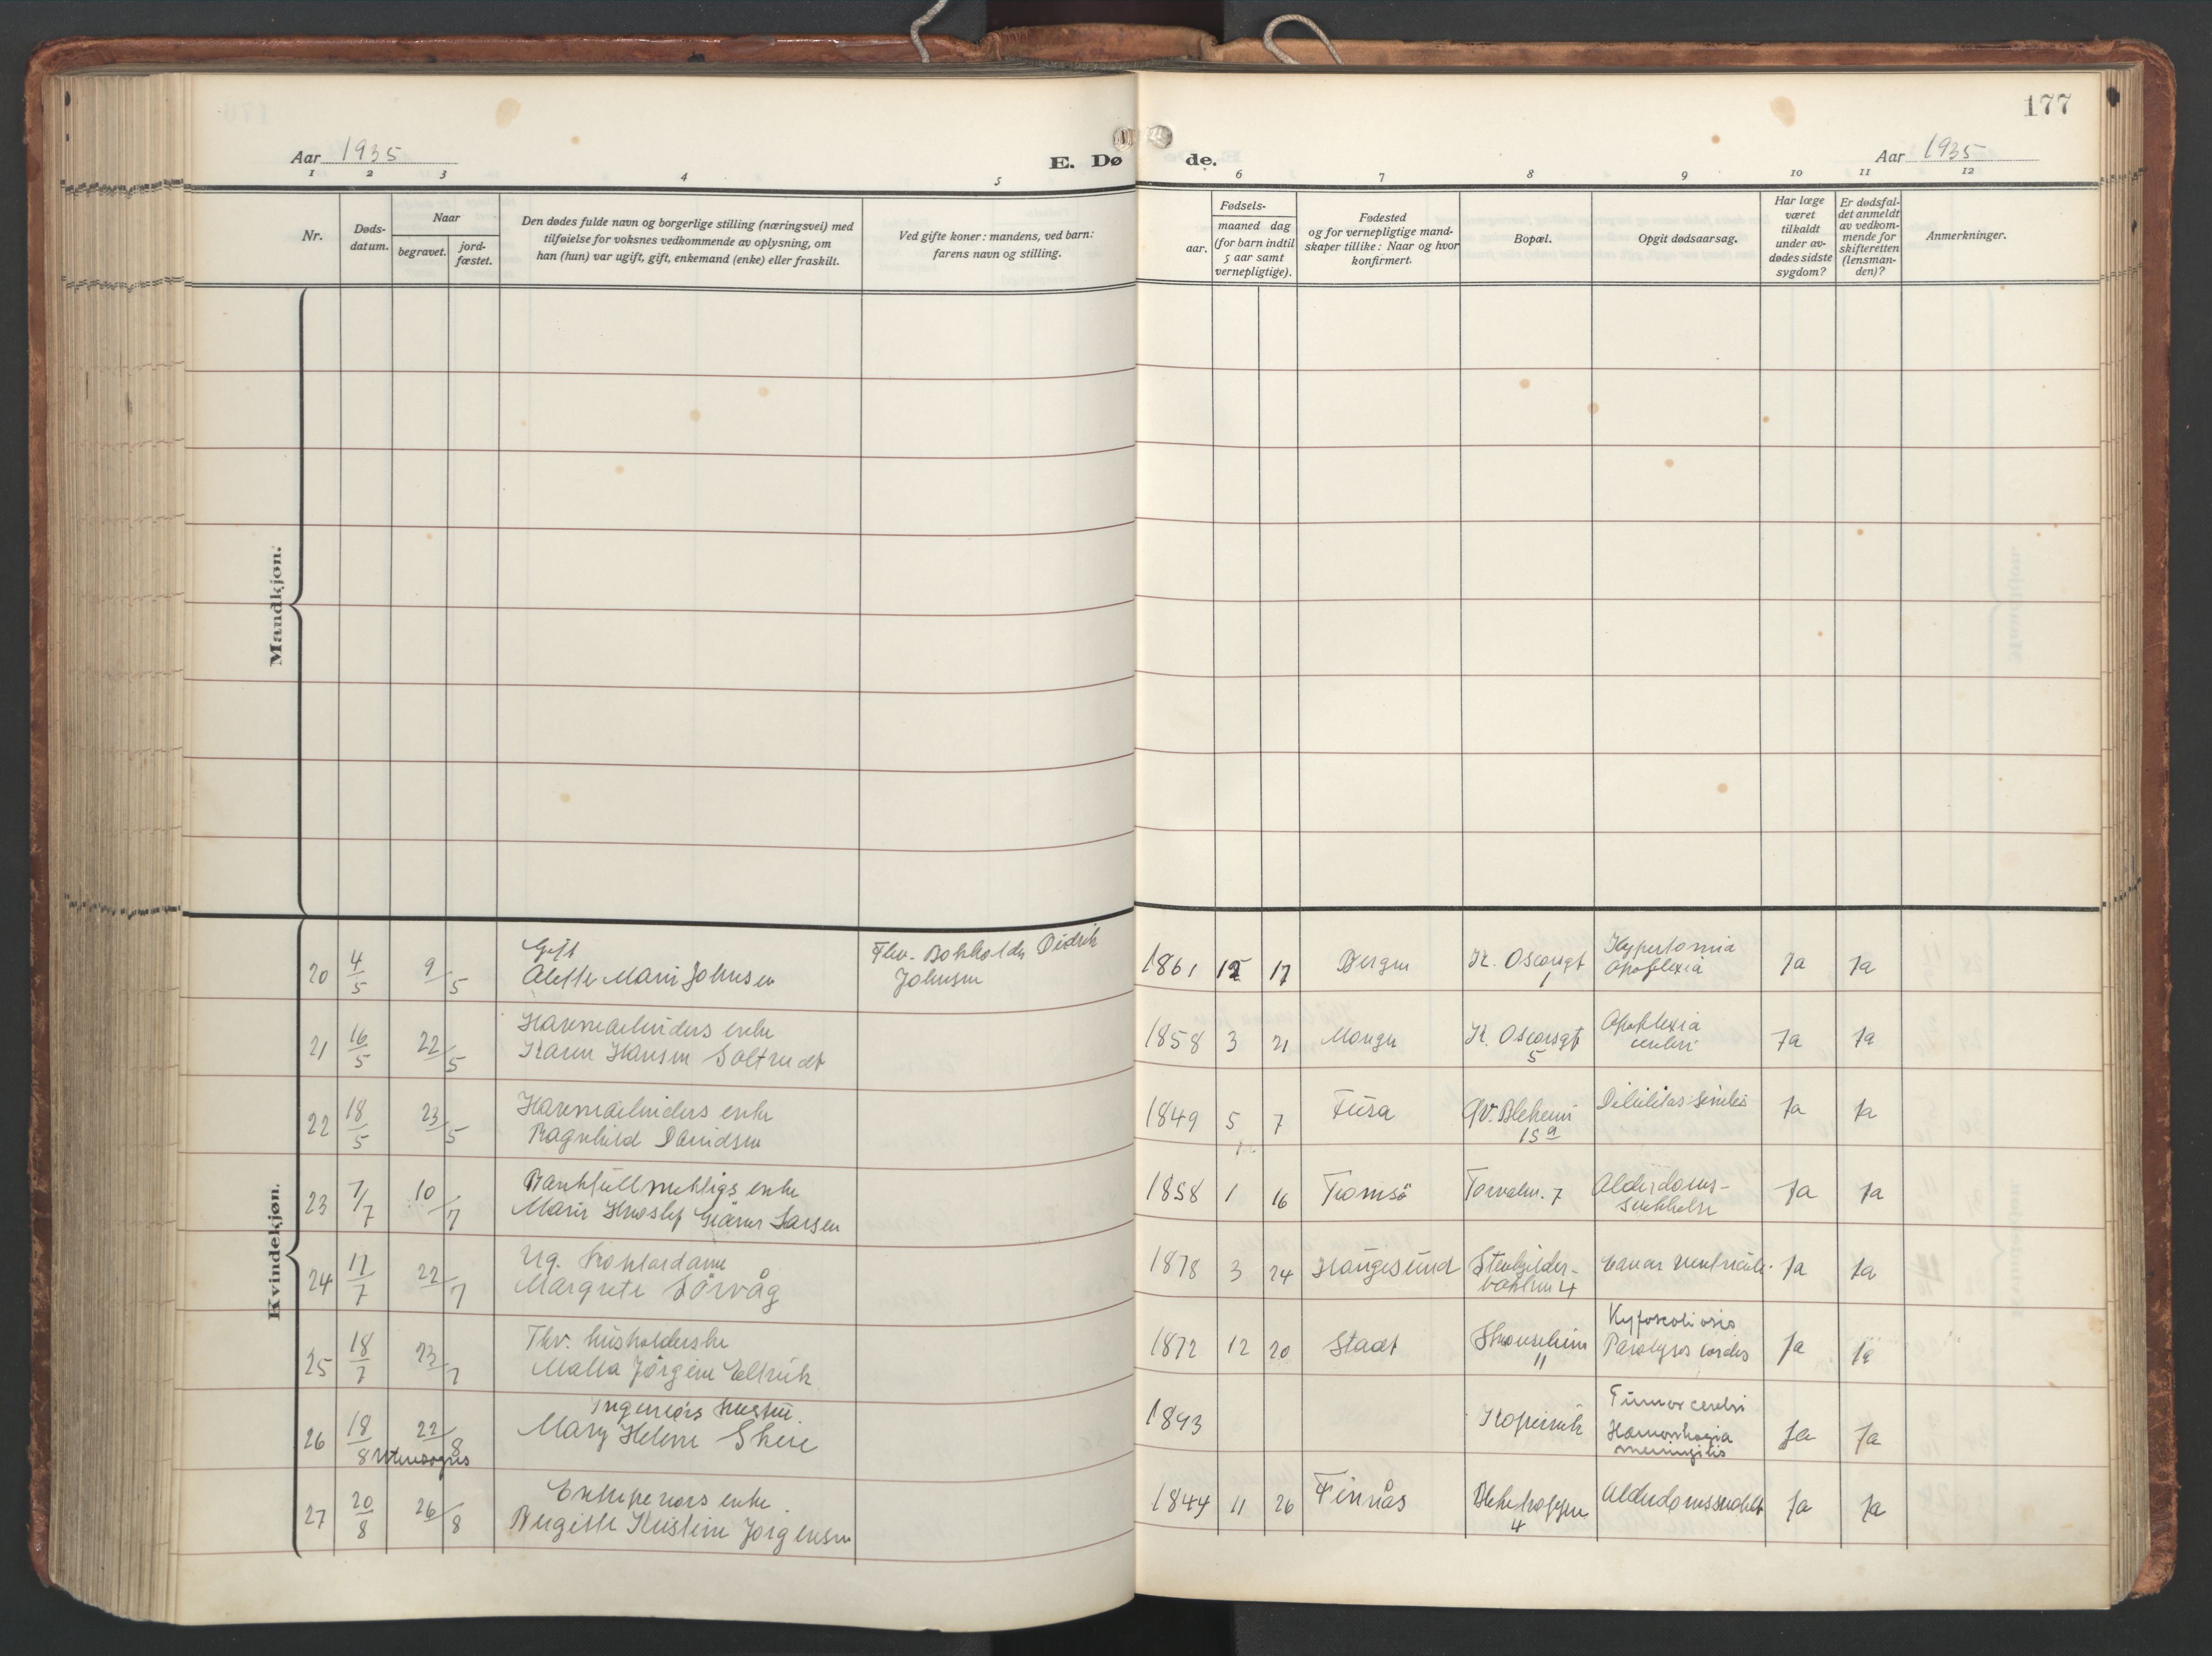 177
Aar 1935
E. Dø
de.
Aar 1935
1 2 3 4 5 6 7 8 9 10 11 12
Nr.
Døds-
datum.
Naar
begravet.
jord-
fæstet.
Den dødes fulde navn og borgerlige stilling (næringsvei) med
tilføielse for voksnes vedkommende av oplysning, om
han (hun) var ugift, gift, enkemand (enke) eller fraskilt.
Ved gifte koner: mandens, ved barn:
farens navn og stilling.
Fødsels-
aar.
maaned dag
(for barn indtil
5 aar samt
vernepligtige).
Fødested
og for vernepligtige mand-
skaper tillike: Naar og hvor
konfirmert.
Bopæl.
Opgit dødsaarsag.
Har læge
været
tilkaldt
under av-
dødes sidste
sygdom?
Er dødsfal-
det anmeldt
av vedkom-
mende for
skifteretten
(lensman-
den)?
Anmerkninger.
Mandkjøn.
Kvindekjøn.
20 4/5 9/5
Gift
Alette Marie Johnsen
Didrik
Johnsen
1861 12 17 Bergen K. Oscarsgt
1
Hypertonia
Apoplexia
Ja Ja
21 16/5 22/5
enke
Karen Hansen
1858 3 21 K. Oscarsgt
5
Apoplexia
cerebri
Ja Ja
22 18/5 23/5
enke
Ragnhild Davidsen
1849 5 7 Fusa
15 a
Debilitas senilis
Ja Ja
23 7/7 10/7
enke
Marie Larsen
1858 1 16 Tromsö 7
Alderdoms-
Ja Ja
24 17/7 22/7
Ug. Kontordame
Margrete Sörvåg
1878 3 24 Haugesund
4
Ja Ja
25 18/7 23/7
Fhv. husholderske
Malla Jörgine
1872 12 20 Stadt
11
Kyfoscoliosis
Paralysis cordis
Ja Ja
26 18/8 22/8
Utenbygds
Ingeniørs hustru.
Mary Helene
1893
Tumor cerebri
Hæmorrhagia
Ja Ja
27 20/8 26/8
enke.
Birgitte Kristine Jörgensen
1844 11 26 Finnås
4
Ja Ja